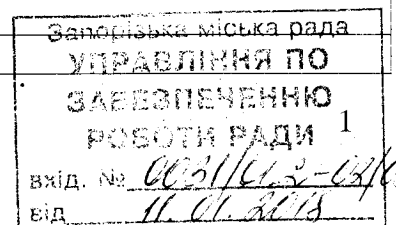 Запорізька міська рада
УПРАВЛІННЯ ПО
ЗАБЕЗПЕЧЕННЮ
РОБОТИ РАДИ 1
вхід. №
від 11. 01. 2018